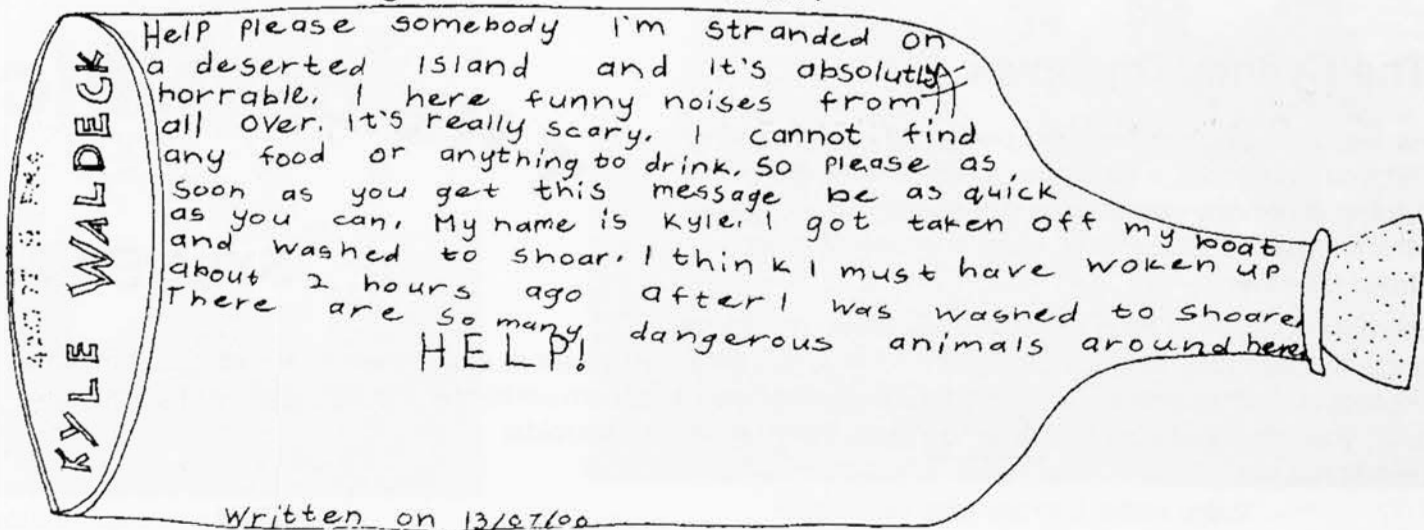 Help please somebody I'm stranded on
a deserted Island and it's absolutly
horrable. I here funny noises from
all over. It's really scary. I cannot find
any food or anything to drink. So please as
soon as you get this message be as quick
as you can. My name is Kyle. I got taken off my boat
and washed to shoar. I think I must have woken up
about 2 hours ago after I was washed to shoare.
There are so many dangerous animals around here.
HELP!
KYLE WALDECK
Written on 13/07/00